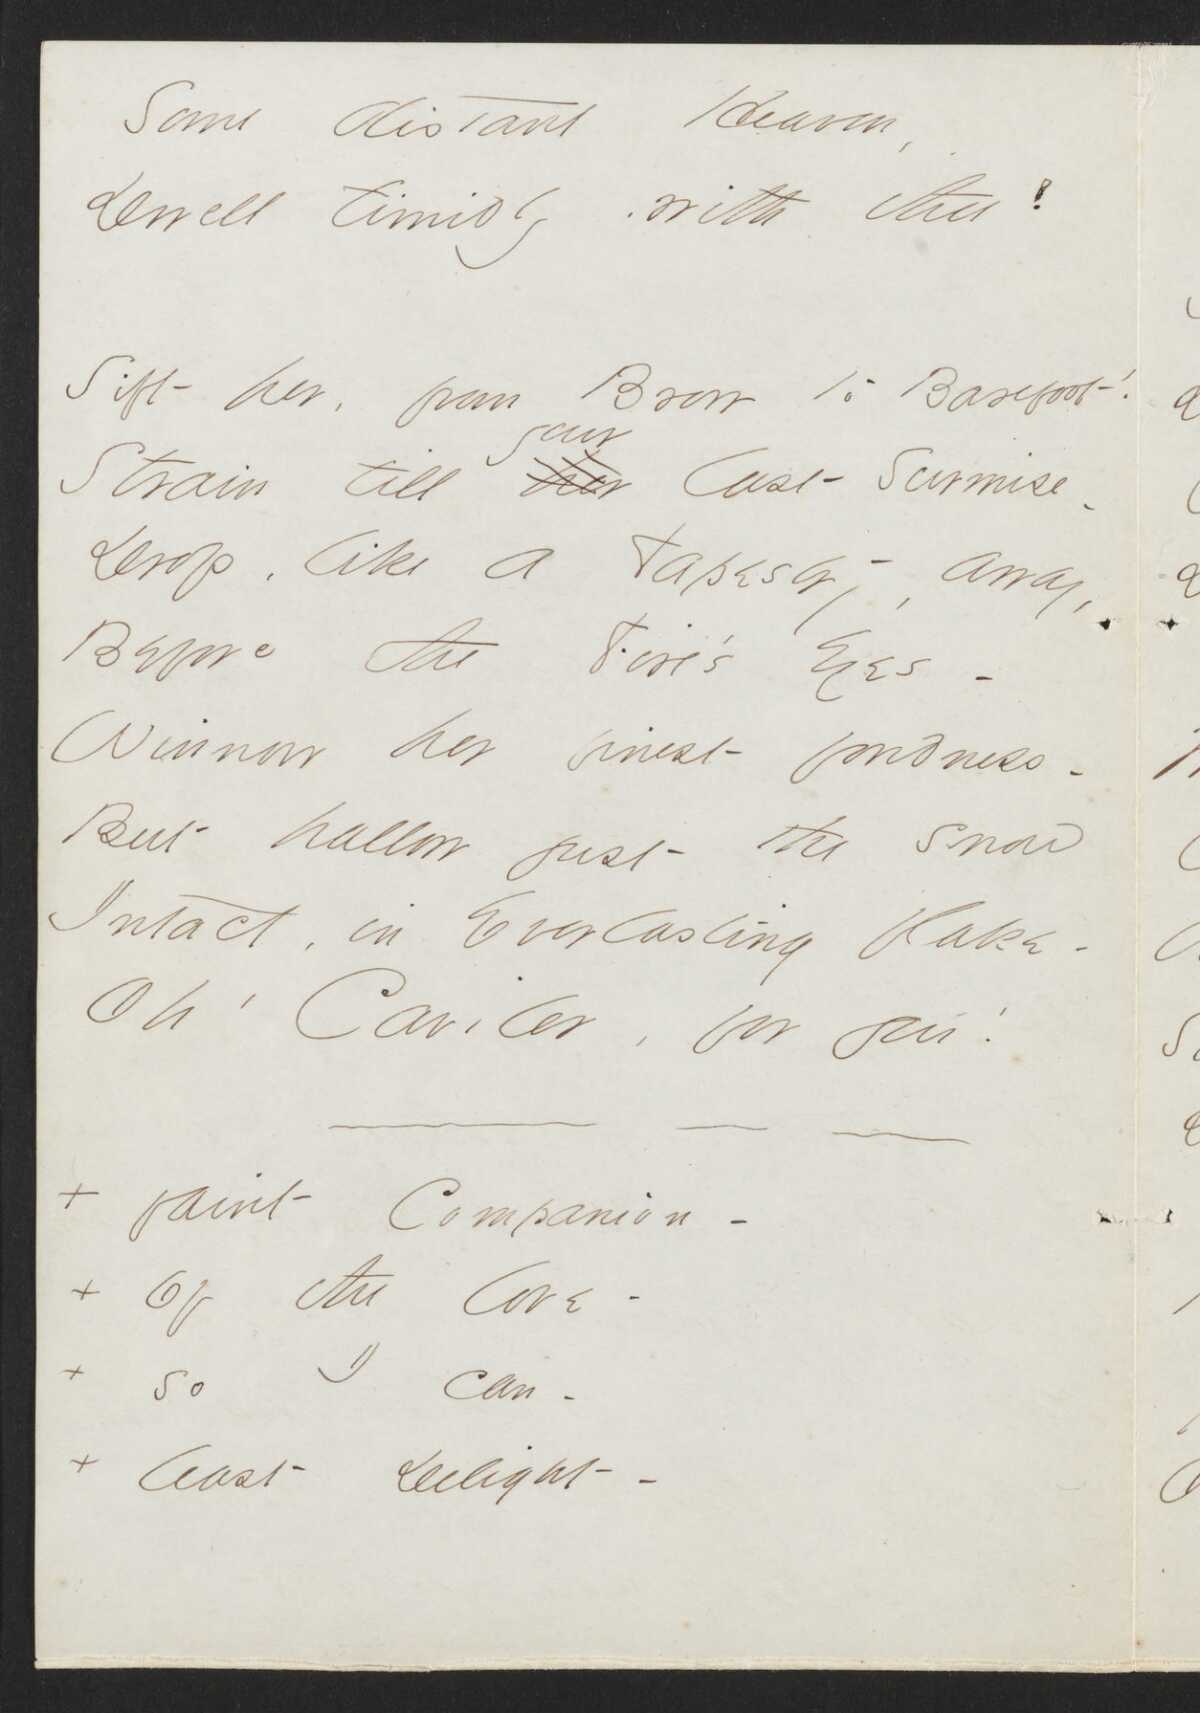 Some distant Heaven,
Dwell timidly, with thee!
Sift her, from Brow to Barefoot!
your
Strain till her last Surmise -
Drop, like a Tapestry, away,
Before the Fire's Eyes -
Winnow her finest fondness -
But hallow just the snow
Intact, in Everlasting flake -
Oh, Caviler, for you!
+ faint Companion -
+ Of the love -
+ so I can -
+ least Delight -